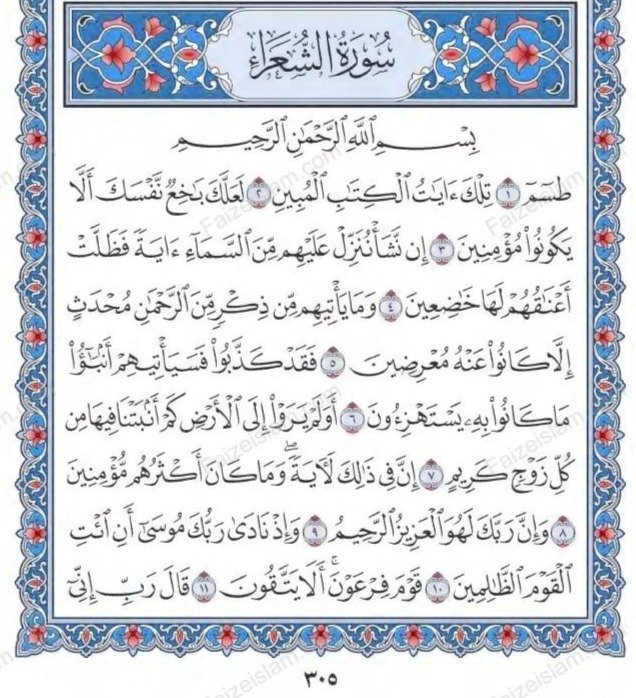 سُورَةُ الشُّعَرَاءِ
بِسْمِ اللَّهِ الرَّحْمَٰنِ الرَّحِيمِ
طسٓمٓ ١ تِلْكَ ءَايَٰتُ ٱلْكِتَٰبِ ٱلْمُبِينِ ٢ لَعَلَّكَ بَٰخِعٌ نَّفْسَكَ أَلَّا
يَكُونُوا۟ مُؤْمِنِينَ ٣ إِن نَّشَأْ نُنَزِّلْ عَلَيْهِم مِّنَ ٱلسَّمَآءِ ءَايَةً فَظَلَّتْ
أَعْنَٰقُهُمْ لَهَا خَٰضِعِينَ ٤ وَمَا يَأْتِيهِم مِّن ذِكْرٍ مِّنَ ٱلرَّحْمَٰنِ مُحْدَثٍ
إِلَّا كَانُوا۟ عَنْهُ مُعْرِضِينَ ٥ فَقَدْ كَذَّبُوا۟ فَسَيَأْتِيهِمْ أَنۢبَٰٓؤُا۟
مَا كَانُوا۟ بِهِۦ يَسْتَهْزِءُونَ ٦ أَوَلَمْ يَرَوْا۟ إِلَى ٱلْأَرْضِ كَمْ أَنۢبَتْنَا فِيهَا مِن
كُلِّ زَوْجٍ كَرِيمٍ ٧ إِنَّ فِى ذَٰلِكَ لَءَايَةً ۖ وَمَا كَانَ أَكْثَرُهُم مُّؤْمِنِينَ
٨ وَإِنَّ رَبَّكَ لَهُوَ ٱلْعَزِيزُ ٱلرَّحِيمُ ٩ وَإِذْ نَادَىٰ رَبُّكَ مُوسَىٰٓ أَنِ ٱئْتِ
ٱلْقَوْمَ ٱلظَّٰلِمِينَ ١٠ قَوْمَ فِرْعَوْنَ ۚ أَلَا يَتَّقُونَ ١١ قَالَ رَبِّ إِنِّىٓ
٣٠٥
Faizeislam.com